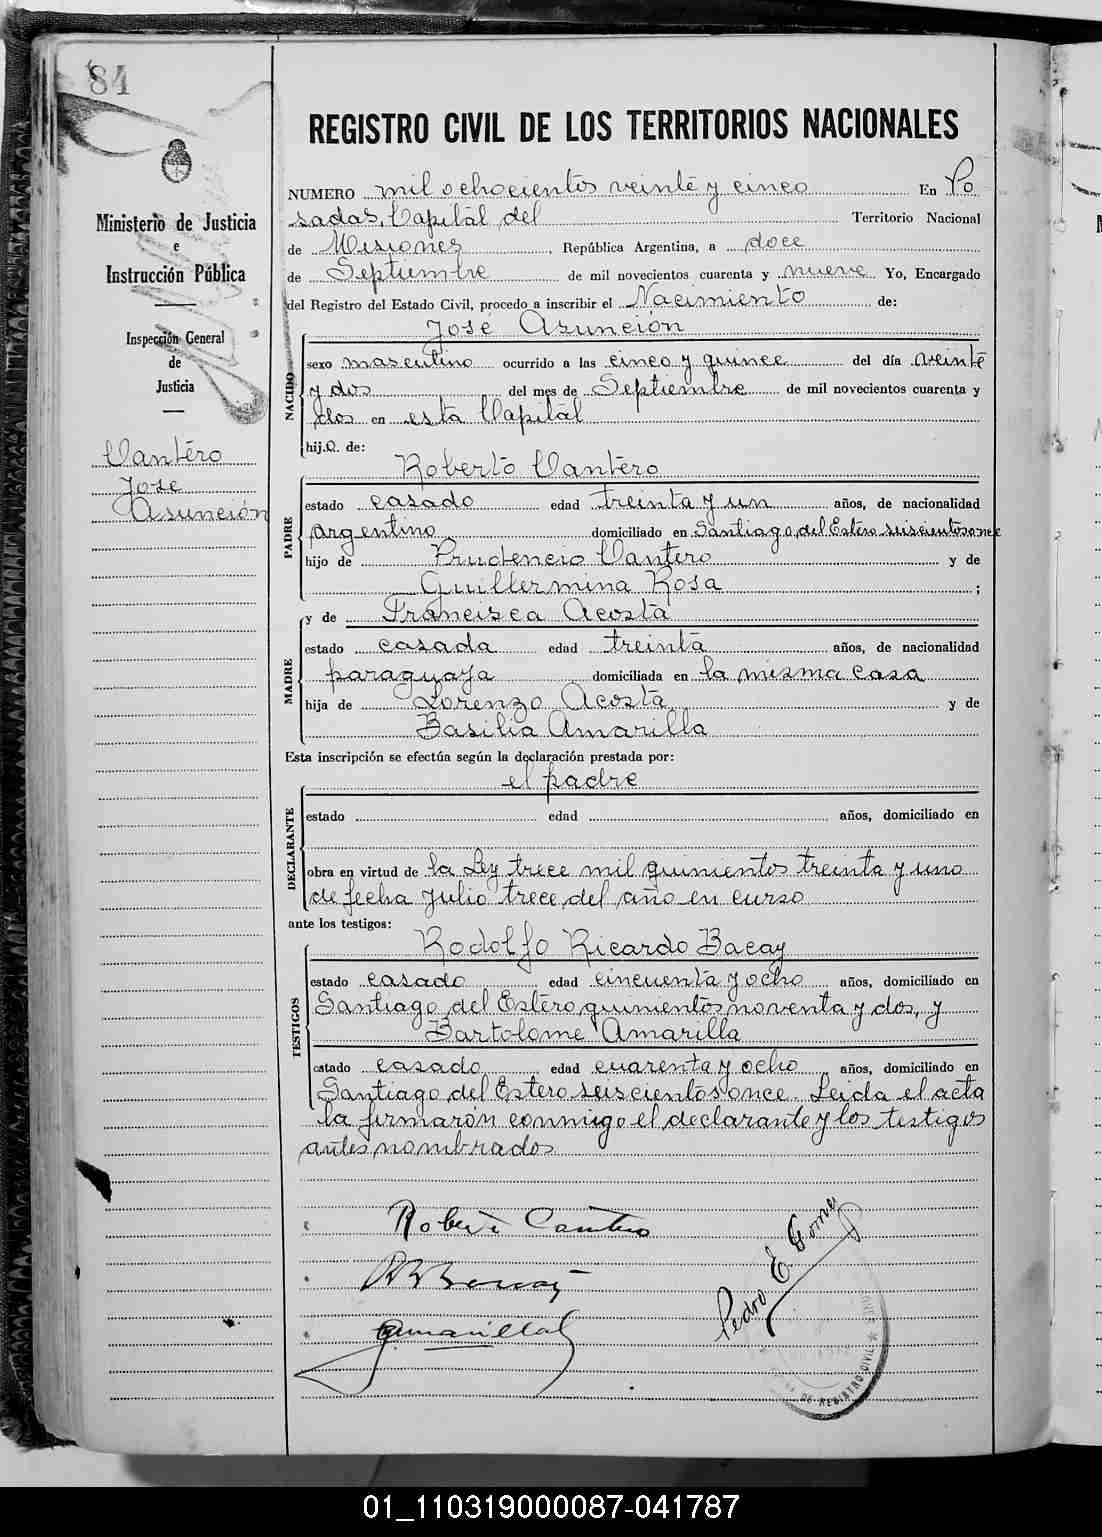 84
Ministerio de Justicia
e
Instrucción Pública
Inspección General
de
Justicia
Cantero
José
Asunción
REGISTRO CIVIL DE LOS TERRITORIOS NACIONALES
NUMERO mil ochocientos veinte y cinco En Po
sadas, Capital del Territorio Nacional
de Misiones, República Argentina, a doce
de Septiembre de mil novecientos cuarenta y nueve Yo, Encargado
del Registro del Estado Civil, procedo a inscribir el Nacimiento de:
NACIDO
José Asunción
sexo masculino ocurrido a las cinco y quince del día veinte
y dos del mes de Septiembre de mil novecientos cuarenta y
dos en esta Capital
hij.o. de:
PADRE
Roberto Cantero
estado casado edad treinta y un años, de nacionalidad
argentino domiciliado en Santiago del Estero seiscientos once
hijo de Prudencio Cantero y de
Guillermina Rosa ;
MADRE
y de Francisca Acosta
estado casada edad treinta años, de nacionalidad
paraguaya domiciliada en la misma casa
hija de Lorenzo Acosta y de
Basilia Amarilla
Esta inscripción se efectúa según la declaración prestada por:
DECLARANTE
el padre
estado edad años, domiciliado en
obra en virtud de la Ley trece mil quinientos treinta y uno
de fecha Julio trece del año en curso
ante los testigos:
TESTIGOS
Rodolfo Ricardo Bacay
estado casado edad cincuenta y ocho años, domiciliado en
Santiago del Estero quinientos noventa y dos, y
Bartolome Amarilla
estado casado edad cuarenta y ocho años, domiciliado en
Santiago del Estero seiscientos once. Leida el acta
la firmarón conmigo el declarante y los testigos
antes nombrados
Roberto Cantero
Amarilla
Pedro E. Gomez
DE REGISTRO CIVIL
01_110319000087-041787